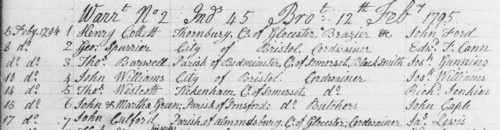 Warrt No 2 Ind 45 Brot 12th Feby 1795
5 Feby 1794 1 Henry Collett Thornbury, Co of Glocester Brazier & John Ford
8 do 2 Geo: Spurrier City of Bristol Cordwainer Edwd T. Cann
do do 3 Thos Barwell Parish of Bedminster, Co of Somerset, Black Smith Jos: Gunning
10 do 4 John Williams City of Bristol Cordwainer Jos: Williams
14 do 5 Thos Westcott Tickenham, Co of Somerset do Richd Jenkins
15 do 6 John & Martha Green; Parish of do Butchers John Caple
17 do 7 John Parish of almondsbury Co of Glocester; Cordwainer Jas: Lewis